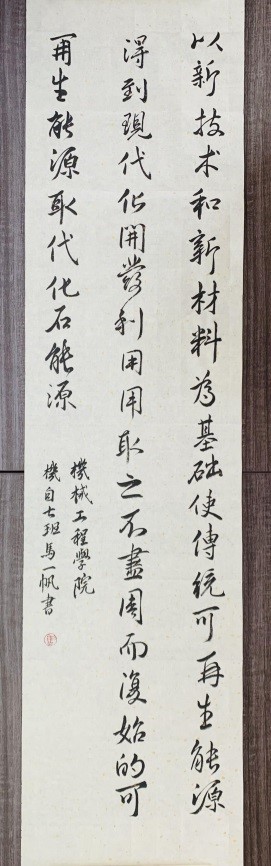 以新技术和新材料為基础使傳統可再生能源
得到現代化開發利用用取之不盡周而復始的可
再生能源取代化石能源
機械工程學院
機自七班馬一帆書